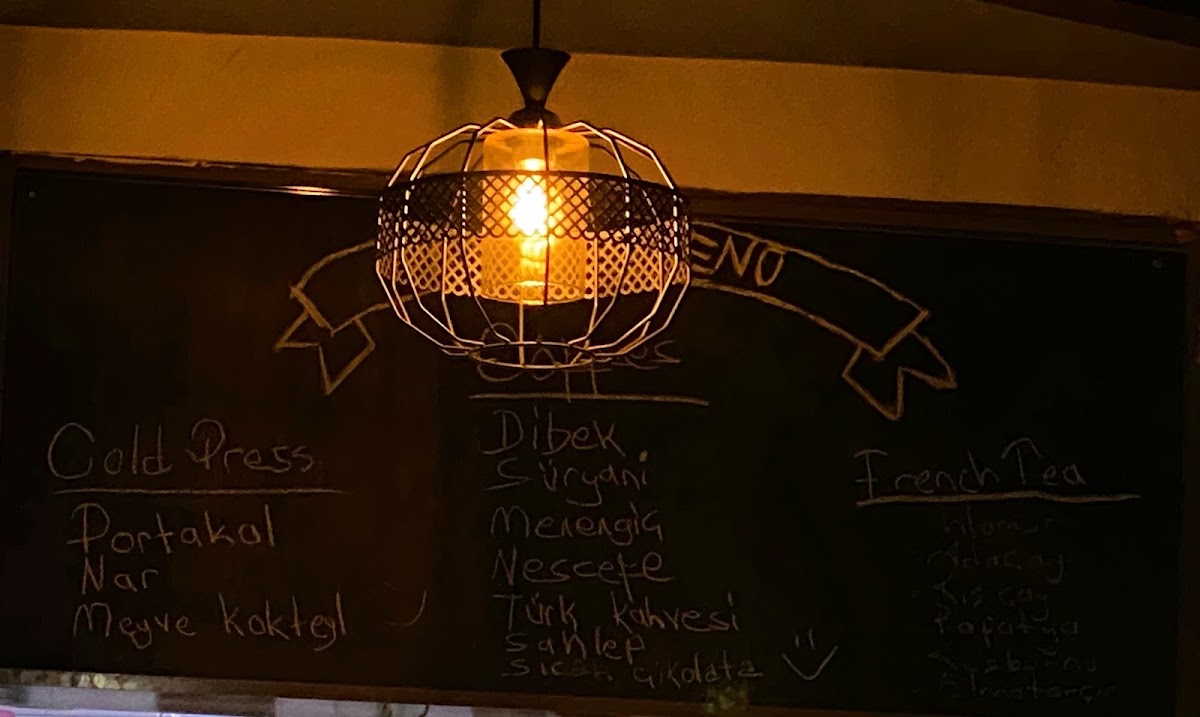 ENO
Coffees
Cold Press
Portakal
Nar
Meyve kokteyl
Dibek
Süryani
Menengiç
Nescefe
Türk kahvesi
Sahlep
Sıcak çikolata
French Tea
Ihlamur
Adaçay
Kış çay
Papatya